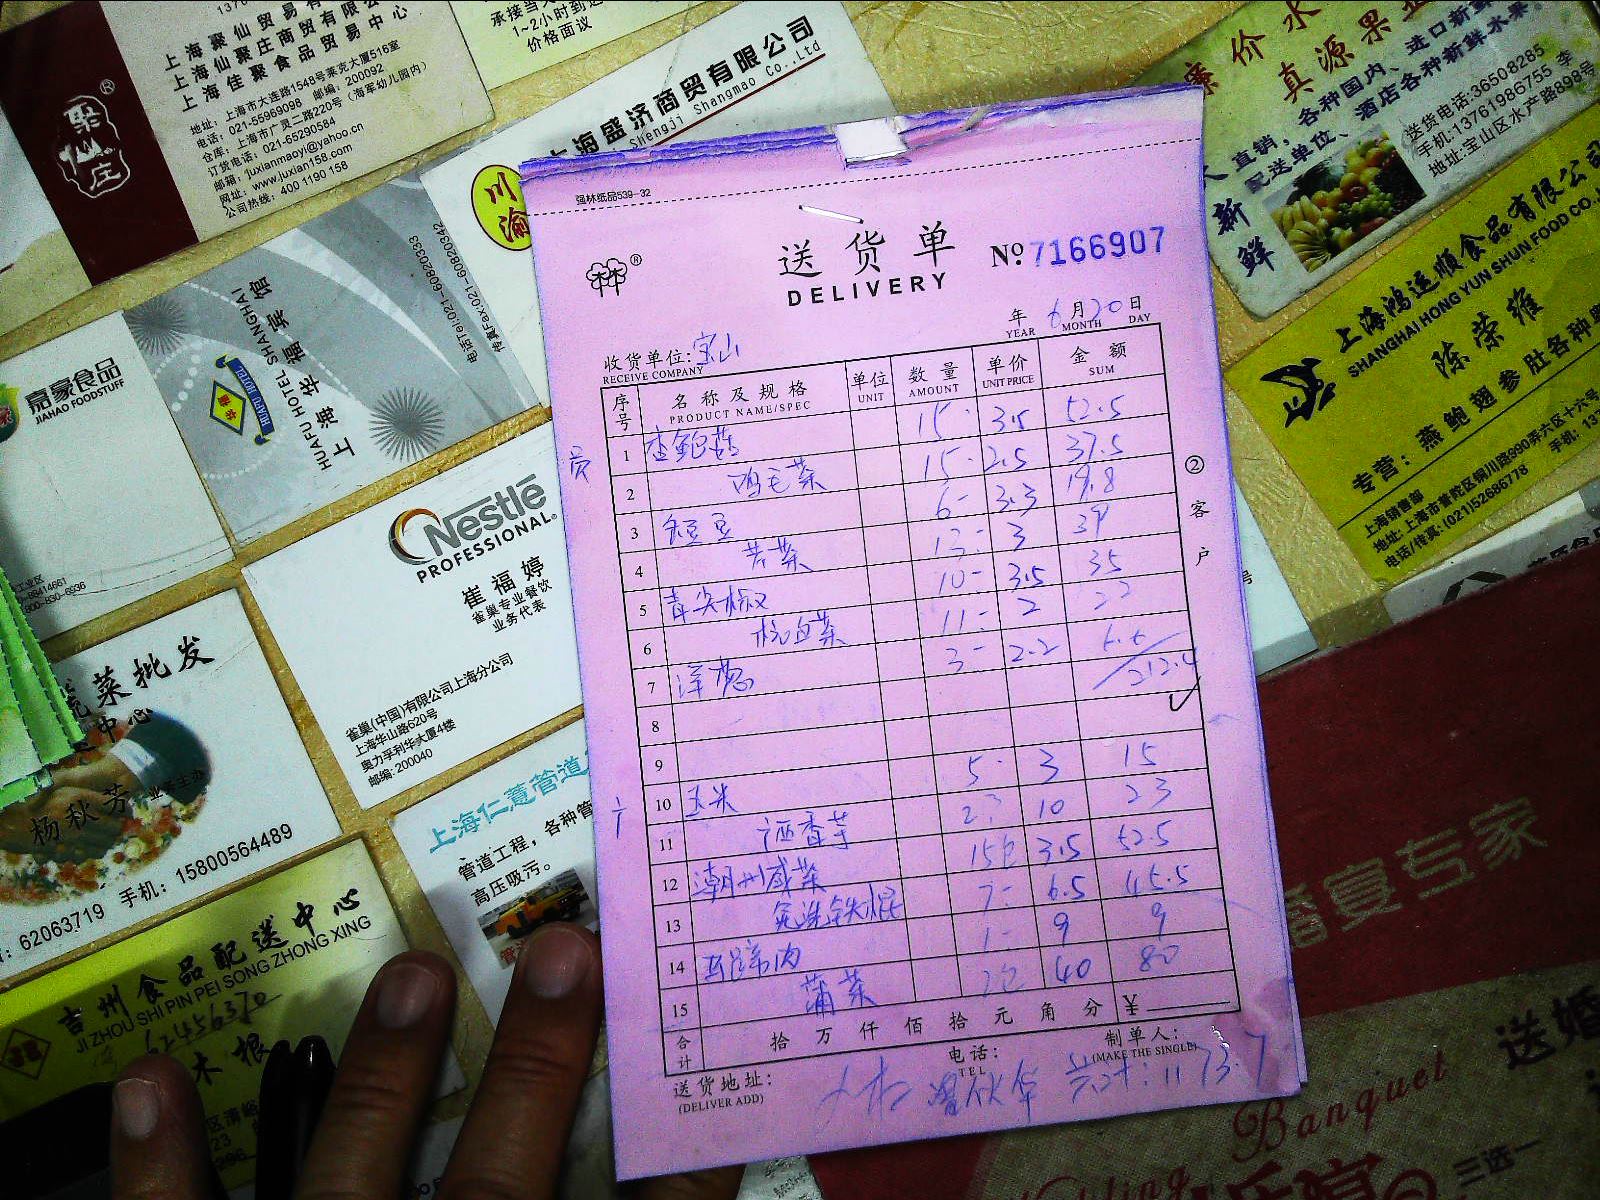 上海聚仙贸易有
上海仙聚庄商贸有限公
上海佳聚食品贸易中心
地址：上海市大连路1548号莱克大厦516室
电话：021-55969098 邮编：200092
仓库：上海市广灵二路220号（海军幼儿园内）
订货电话：021-65290584
邮箱：juxianmaoyi@yahoo.cn
网址：www.juxian158.com
公司热线：400 1190 158
聚仙庄®
承接当天
1~2小时到达
价格面议
上海盛济商贸有限公司
Shengji Shangmao Co.,Ltd
川渝
廉价水
真源果业
直销，各种国内、进口新鲜
配送单位、酒店各种新鲜水果。
新鲜
送货电话:36508285
手机:13761986755 李
地址:宝山区水产路898号
上海鸿运顺食品有限公司
SHANGHAI HONG YUN SHUN FOOD CO.,
陈荣雄
专营：燕鲍翅参肚各种
上海销售部
地址:上海市普陀区铜川路990弄六区十六号
电话/传真:(021)52686778 手机:
嘉豪食品
JIAHAO FOODSTUFF
上海华福宾馆
HUAFU HOTEL SHANGHAI
HUAFU HOTEL
电话Tel:021-60820333
传真Fax:021-60820342
Nestlé
PROFESSIONAL®
崔福婷
雀巢专业餐饮
业务代表
雀巢(中国)有限公司上海分公司
上海华山路620号
奥力孚利华大厦4楼
邮编: 200040
蔬菜批发
中心
杨秋芳
手机：15800564489
62063719
上海仁薏管道
管道工程，各种管
高压吸污。
吉州食品配送中心
JI ZHOU SHI PIN PEI SONG ZHONG XING
62456370
木根
强林纸品539-32
送货单
DELIVERY
№ 7166907
年 6 月 20 日
YEAR MONTH DAY
收货单位: 宝山
RECEIVE COMPANY
序号 名称及规格 单位 数量 单价 金额
PRODUCT NAME/SPEC UNIT AMOUNT UNIT PRICE SUM
1 杏鲍菇 15- 3.5 52.5
2 鸡毛菜 15- 2.5 37.5
3 6- 3.3 19.8
4 苦菜 13- 3 39
5 青尖椒 10- 3.5 35
6 杭白菜 11- 2 22
7 洋葱 3- 2.2 6.6
212.4
8
9
10 玉米 5- 3 15
11 洒香芋 23 10 23
12 潮州咸菜 15包 3.5 52.5
13 铁棍 7- 6.5 45.5
14 马蹄肉 1- 9 9
15 蒲菜 2包 40 80
合计 拾 万 仟 佰 拾 元 角 分 ¥
送货地址：
(DELIVER ADD)
电话：
TEL
制单人：
(MAKE THE SINGLE)
共计：1173.7
②客户
宴专家
送婚
Wedding Banquet
三选一